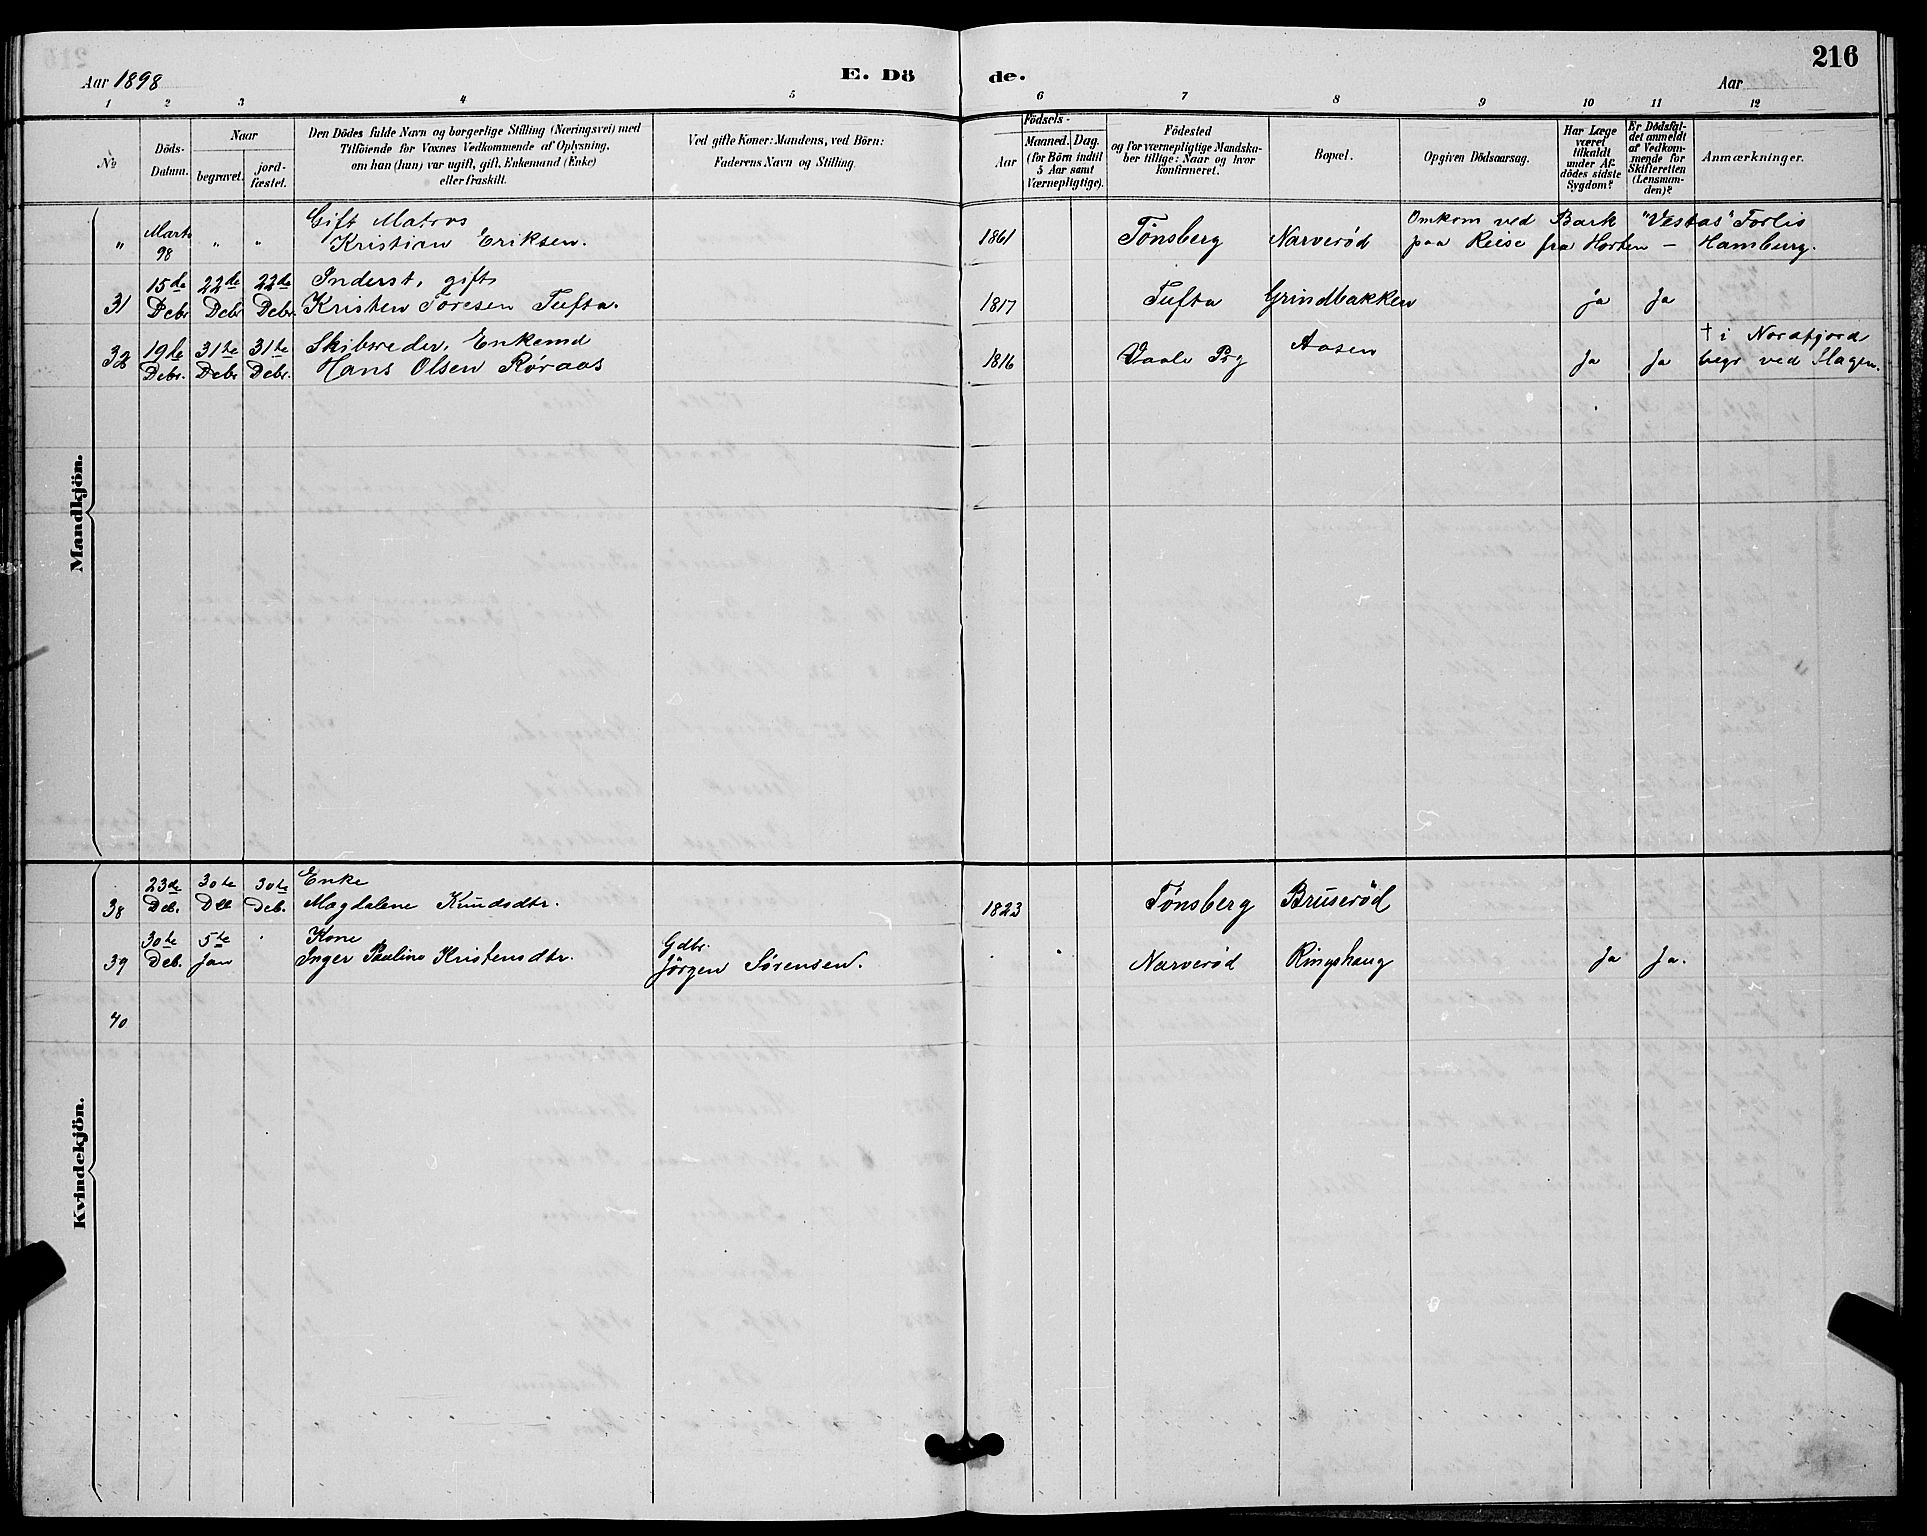 216
Aar 1898
E. Dö
de.
Aar
1 2 3 4 5 6 7 8 9 10 11 12
№
Döds-
Datum.
Naar
begravet.
jord-
fæstet.
Den Dödes fulde Navn og borgerlige Stilling (Næringsvei) med
Tilföiende for Voxnes Vedkommende af Oplysning,
om han (hun) var ugift, gift, Enkemand (Enke)
eller fraskilt.
Ved gifte Koner: Mandens, ved Börn:
Faderens Navn og Stilling.
Födsels-
Aar
Maaned. Dag.
(for Börn indtil
5 Aar samt
Værnepligtige).
Födested
og for værnepligtige Mandska-
ber tillige: Naar og hvor
konfirmeret.
Bopæl.
Opgiven Dödsaarsag.
Har Læge
været
tilkaldt
under Af-
dödes sidste
Sygdom?
Er Dödsfal-
det anmeldt
af Vedkom-
mende for
Skifteretten
(Lensman-
den)?
Anmærkninger.
Mandkjön.
" Marts 98 " " Gift Matros
Kristian Eriksen. 1861 Tønsberg Narverød
Omkom ved Bark "Vestas" Forlis
paa Reise fra Horten – Hamburg.
31 15de Debr 22de Debr 22de Debr. Inderst, gift
Kristen Toresen Tufta. 1817 Tufta Grindbakken ja Ja
32 19de Debr. 31te Debr 31te Debr. Skibsreder, Enkemd
Hans Olsen Røraas 1816 Vaale Prg Aasen Ja Ja
† i Nordfjord
begr ved Slagen.
Kvindekjön.
38 23de Deb. 30te Deb 30te Deb. Enke
Magdalene Knudsdtr. 1823 Tønsberg Bruserød
39 30te Deb. 5te Jan Kone
Inger Pauline Kristensdtr.
Gdbr.
Jörgen Sørensen. Narverød Ringshaug Ja Ja.
40